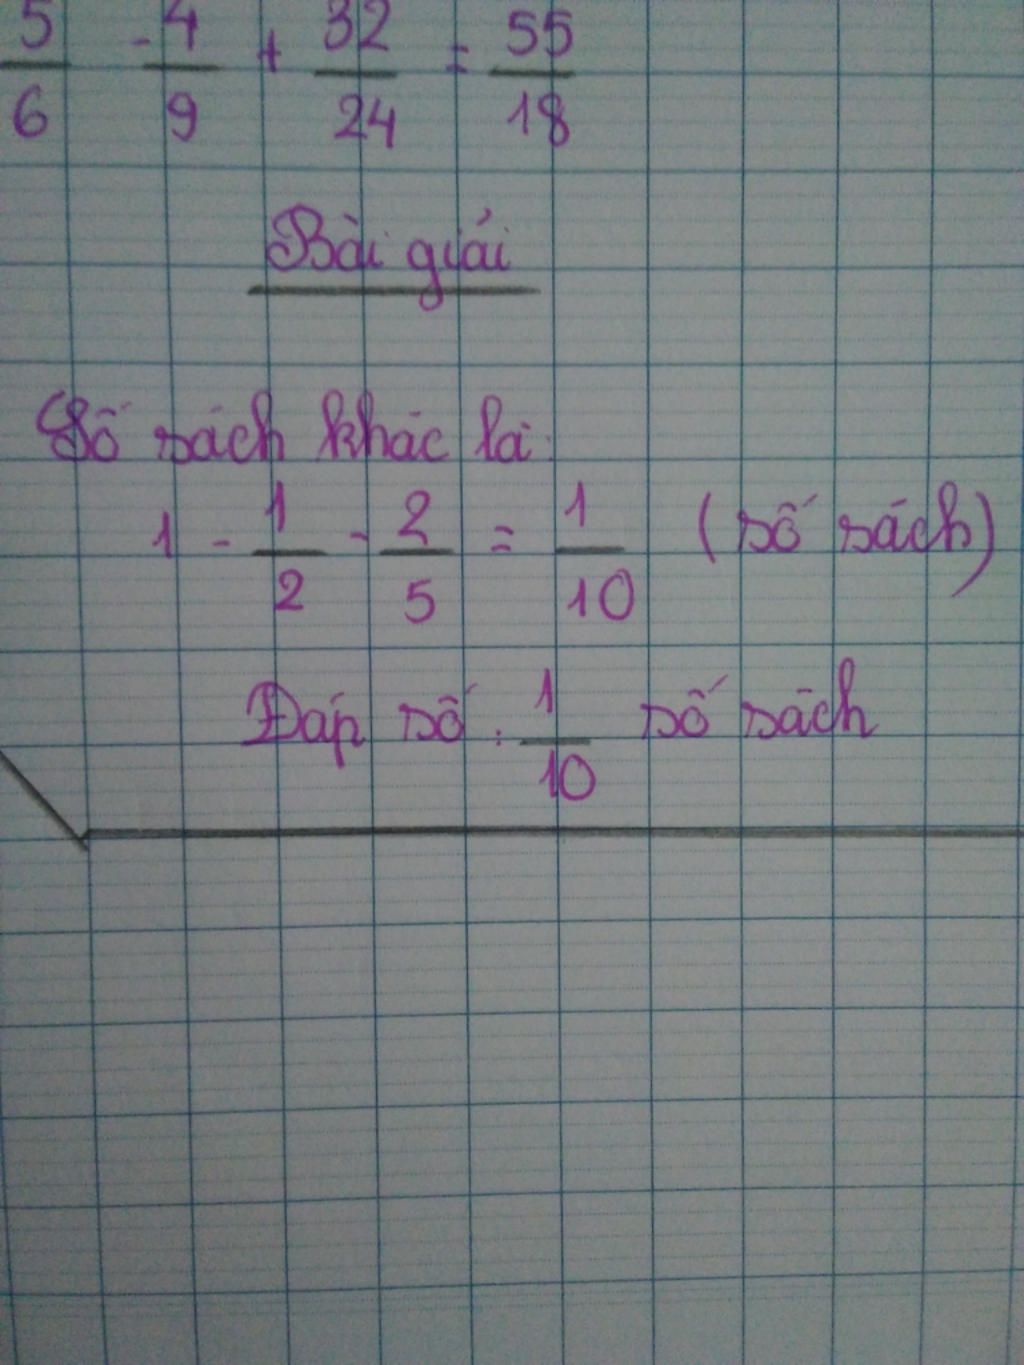 5/6 - 4/9 + 32/24 = 55/18
Bài giải
Số sách khác là:
1 - 1/2 - 2/5 = 1/10 (số sách)
Đáp số: 1/10 số sách